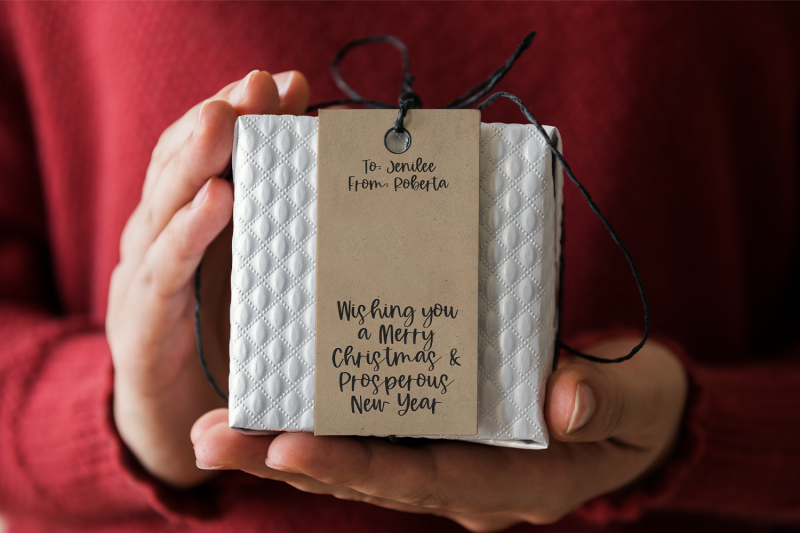 To: Jenilee
From: Roberta
Wishing you
a Merry
Christmas &
Prosperous
New Year